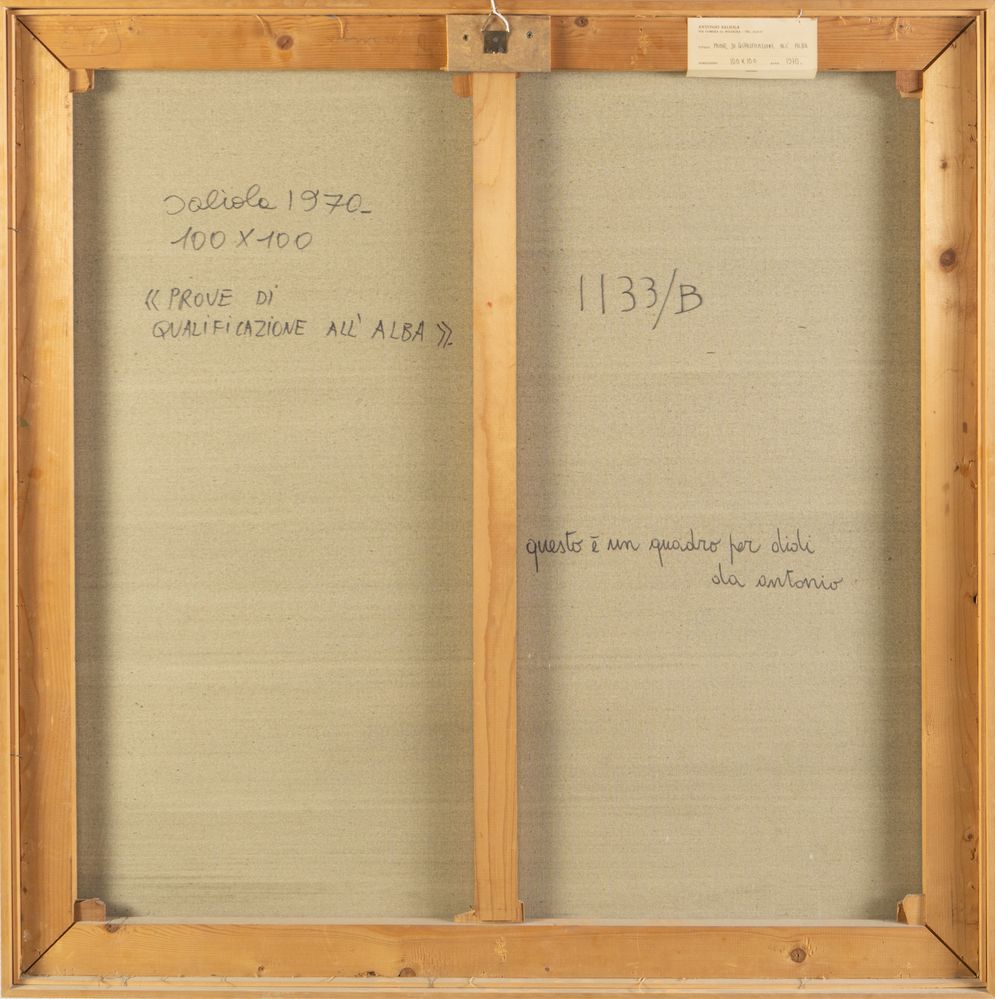 saliola 1970-
100 X 100
« PROVE DI
QUALIFICAZIONE ALL' ALBA ».
1133/B
questo è un quadro per didi
da antonio
ANTONIO SALIOLA
PROVE DI QUALIFICAZIONE ALL' ALBA
100 X 100 1970.